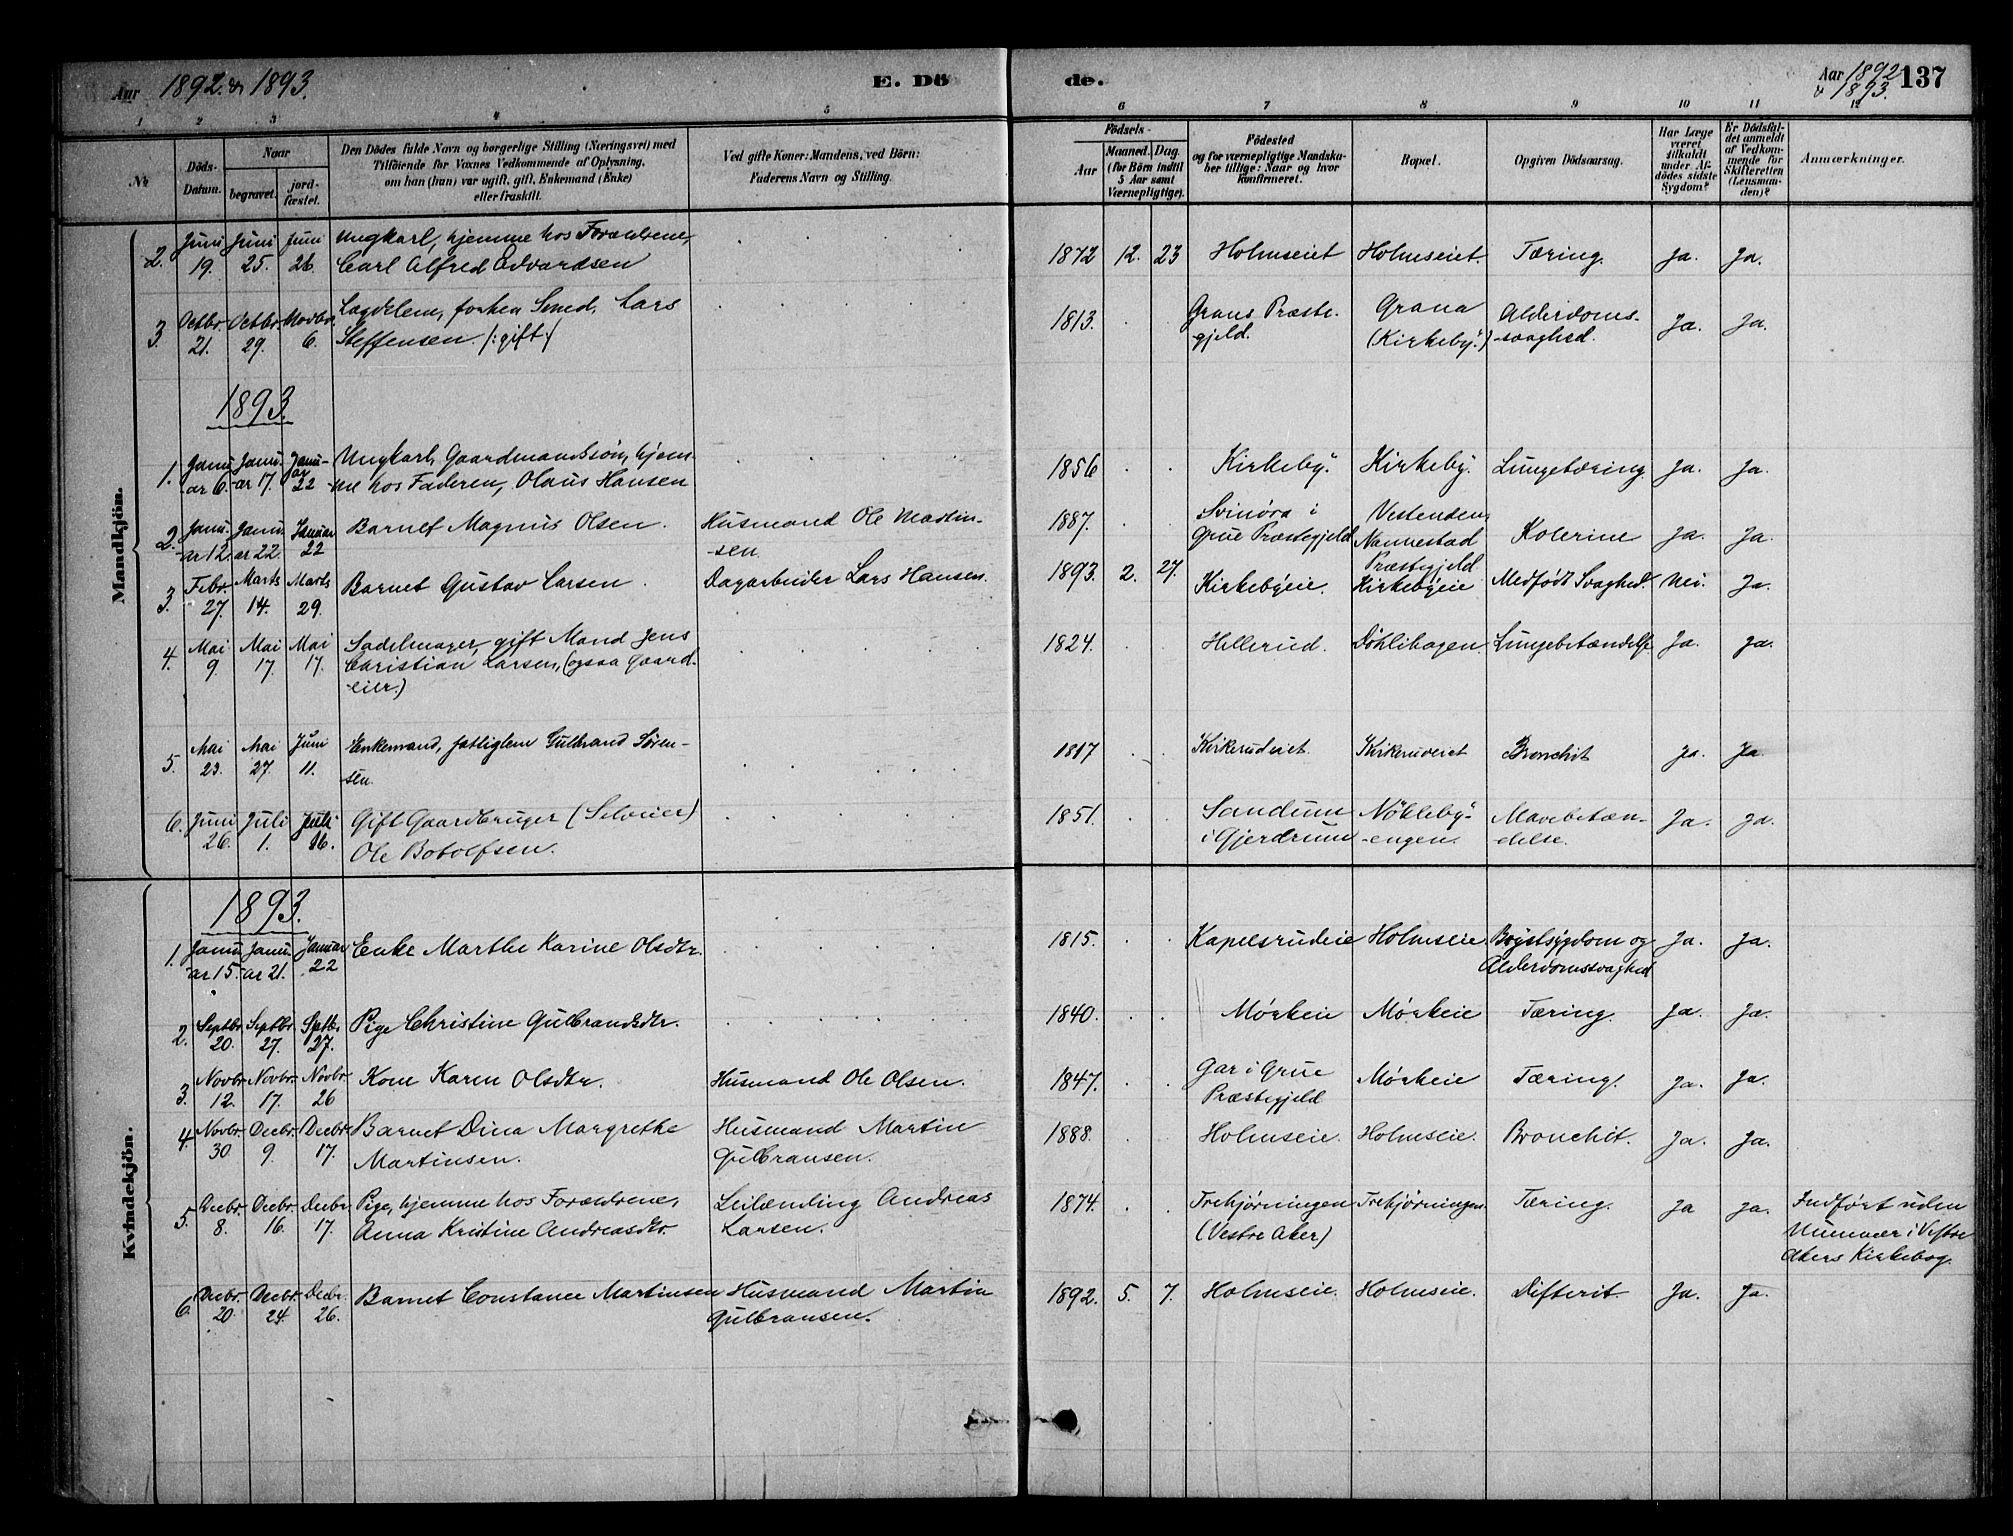 Aar 1892 & 1893. E. Dö de. Aar 1892 & 1893. 137
1 2 3 4 5 6 7 8 9 10 11 12
No. Döds-Datum. Naar begravet. jordfæstet. Den Dödes fulde Navn og borgerlige Stilling (Næringsvei) med
Tilföiende for Voxnes Vedkommende af Oplysning,
om han (hun) var ugift, gift, Enkemand (Enke)
eller fraskilt.
Ved gifte Koner: Mandens, ved Börn:
Faderens Navn og Stilling.
Födsels-
Aar Maaned. Dag.
(for Börn indtil
5 Aar samt
Værnepligtige).
Födested
og for værnepligtige Mandska-
ber tillige: Naar og hvor
konfirmeret.
Bopæl.
Opgiven Dödsaarsag.
Har Læge
været
tilkaldt
under Af-
dödes sidste
Sygdom?
Er Dödsfal-
det anmeldt
af Vedkom-
mende for
Skifteretten
(Lensman-
den)?
Anmærkninger.
Mandkjön.
2. Juni Juni Juni Ungkarl, hjemme hos Forældrene, 1872 12. 23 Holmseiet Holmseiet. Tæring. Ja. Ja.
19. 25. 26. Carl Alfred Edvardsen
3. Octbr. Octbr. Novbr. Lægdslem, forhen Smed, Lars 1813. Grans Præste- Grana Alderdoms- Ja. Ja.
21. 29. 6. Steffensen (: gift :) gjeld. (Kirkeby.) -svaghed.
1893.
1. Janu- Janu- Janu- Ungkarl, Gaardmandssøn, hjem- 1856 Kirkeby. Kirkeby. Lungetæring. Ja. Ja.
ar 6. ar 17. ar 22 -me hos Faderen, Olaus Hansen
2. Janu- Janu- Januar Barnet Magnus Olsen. Husmand Ole Martin- 1887. Svinøra i Vestenden, Kolerine Ja. Ja.
ar 12. ar 22. 22 -sen. Grue Præstegjeld Nannestad
Præstegjeld
3. Febr. Marts Marts Barnet Gustav Larsen. Dagarbeider Lars Hansen. 1893. 2. 27. Kirkebyeie. Kirkebyeie Medfødt Svaghed. Nei. Ja.
27. 14. 29.
4. Mai Mai Mai Sadelmager, gift Mand Jens 1824. Hellerud. Døhlihagen. Lungebetændelse Ja. Ja.
9. 17. 17. Christian Larsen, (ogsaa Gaard-
-eier.)
5. Mai Mai Juni Enkemand, fattiglem Gulbrand Søren- 1817 Kirkerudeiet. Kirkerudeiet Bronchit Ja. Ja.
23. 27. 11. sen.
6. Juni Juli Juli Gift Gaardbruger (Selveier) 1851. Sandum Nökleby- Mavebetæn- Ja. Ja.
26. 1. 16. Ole Botolfsen. i Gjerdrum -engen. -delse.
Kvindekjön.
1893.
1. Janu- Janu- Januar Enke Marthe Karine Olsdtr. 1815. Kapelsrudeie Holmseie Brystsygdom og Ja. Ja.
ar 15. ar 21. 22 Alderdomssvaghed
2. Septbr. Septbr. Septbr. Pige Christine Gulbrandsdtr. 1840. Mørkeie Mørkeie Tæring. Ja. Ja.
20. 27. 27.
3. Novbr. Novbr. Novbr. Kone Karen Olsdtr. Husmand Ole Olsen. 1847. Gar i Grue Mørkeie Tæring. Ja. Ja.
12. 17. 26 Præstegjeld
4. Novbr. Decbr. Decbr. Barnet Dina Margrethe Husmand Martin 1888. Holmseie. Holmseie. Bronchit. Ja. Ja.
30 9. 17. Martinsen. Gulbransen.
5. Decbr. Decbr. Decbr. Pige, hjemme hos Forældrene, Leilænding Andreas 1874. Trehjørningen Trehjørningen. Tæring. Ja Ja. Indført uden
8. 16. 17. Anna Kristine Andreasdtr. Larsen. (Vestre Aker) Nummer i Vestre
Akers Kirkebog.
6. Decbr. Decbr. Decbr. Barnet Constance Martinsen Husmand Martin 1892. 5. 7. Holmseie. Holmseie. Difterit. Ja. Ja.
20. 24. 26. Gulbransen.